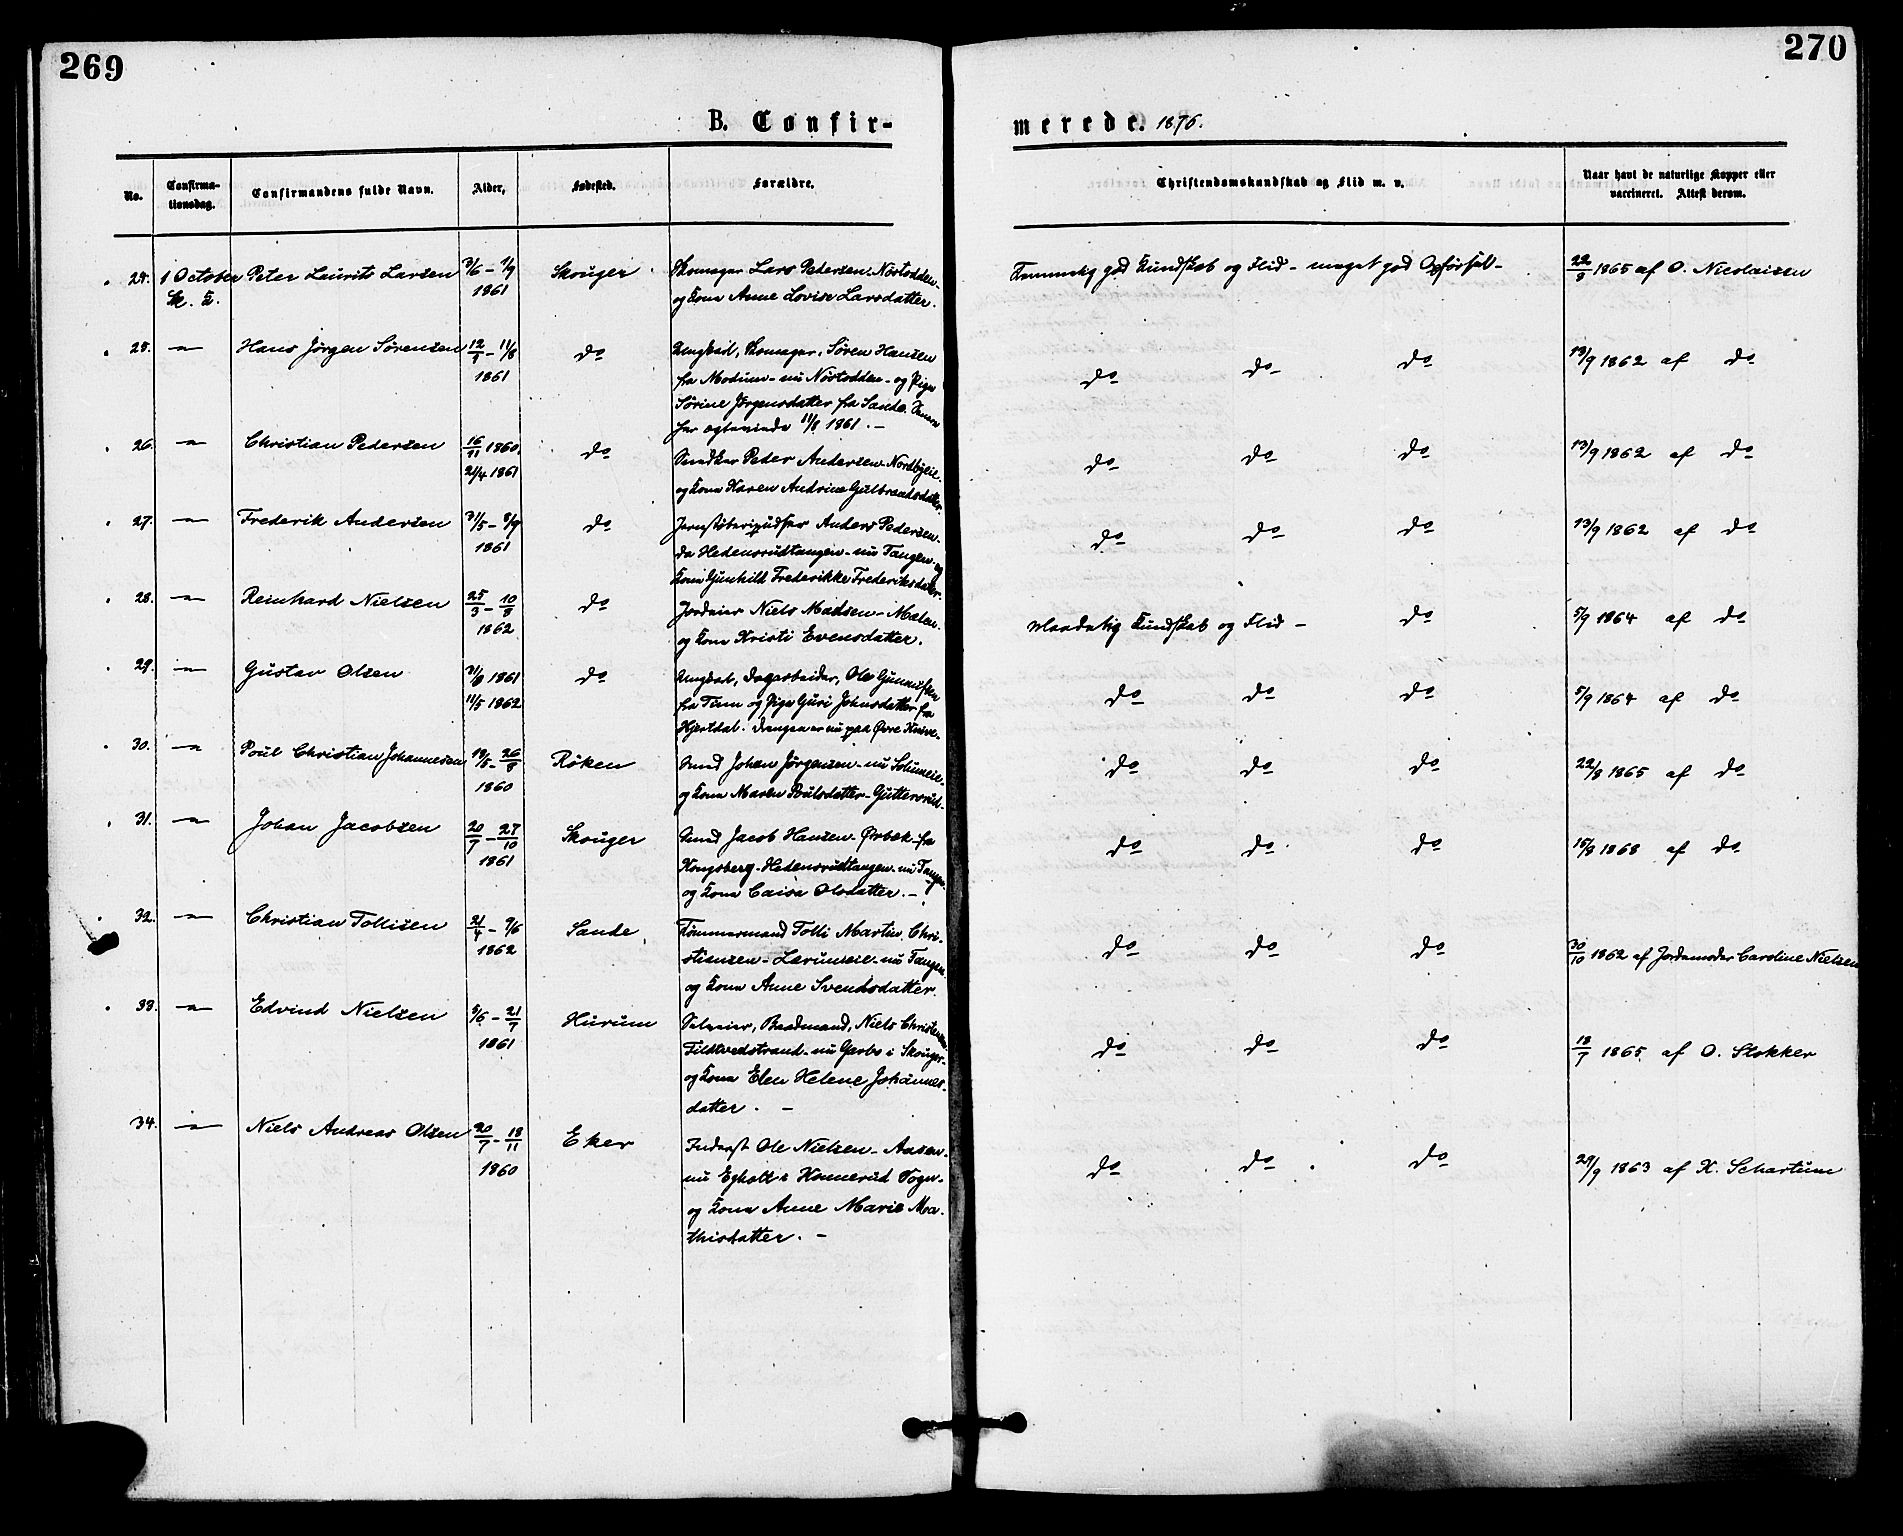 269
270
B. Confir-
merede. 1876.
No.
Confirma-
tionsdag.
Confirmandens fulde Navn.
Alder,
Fødested.
Forældre.
Christendomskundskab og Flid m. v.
Naar havt de naturlige Kopper eller
vaccineret. Attest derom.
24. 1 October Peter Laurits Larsen 3/6 - 1/9 Skouger Skomager Lars Pedersen Nøstodden- god Kundskab og Flid - meget god Opførsel - 22/8 1865 af O. Nicolaisen
Sk. K. 1861 og Kone Anne Lovise Larsdatter.
25. — Hans Jørgen Sørensen 12/7 - 11/8 do Ungkarl, Skomager, Søren Hansen do do do 13/9 1862 af do
1861 fra Modum - nu Nøstodden - og Pige
Sørine Jørgensdatter fra Sande.
11/8 1861. -
26. — Christian Pedersen 16/11 1860 do Snedker Peder Andersen Nordbyeie. do do do 13/9 1862 af do
21/4 1861 og Kone Karen Andrine Gulbrandsdatter.
27. — Frederik Andersen 31/5 - 8/9 do Jernstøberipudser Anders Pedersen. do do do 13/9 1862 af do
1861 da Hedensrudtangen - nu Tangen - og
Kone Gunhild Frederikke Frederiksdatter.
28. — Reinhard Nielsen 25/3 - 10/8 do Jordeier Niels Madsen - Mælen. Maadelig Kundskab og Flid - do 5/9 1864 af do
1862 og Kone Kristi Evensdatter.
29. — Gustav Olsen 31/8 1861 do Ungkarl, Dagarbeider, Ole do do do 5/9 1864 af do
11/5 1862 fra Tinn og Pige Guri Johnsdatter fra
Hjertdal. Drengen er nu paa Øvre Knive-
30. — Poul Christian Johannesen 19/5 - 26/8 Røken Smed Johan Jørgensen - nu - do do do 22/8 1865 af do
1860 og Kone Maren Poulsdatter - Guttersrud.
31. — Johan Jacobsen 20/7 - 27/10 Skouger Smed Jacob Hansen - Ørbæk - fra do do do 15/8 1868 af do
1861 Kongsberg - Hedensrudtangen - nu Tangen -
og Kone Caisa Olsdatter. -
32. — Christian Tollisen 21/4 - 9/6 Sande Tømmermand Tolli Martin Chri- do do do 30/10 1862 af Jordemoder Caroline Nielsen
1862 stiansen - Lerumseie - nu Tangen
og Kone Anne Svendsdatter.
33. — Edvind Nielsen 5/6 - 21/7 Hurum Selveier, Baadmand, Niels Christensen do do do 18/7 1865 af O. Slokker
1861 Filtvedstrand - nu Gjerbo i Skouger -
og Kone Elen Helene Johannes-
datter. -
34. — Niels Andreas Olsen 20/7 - 18/11 Eker Inderst Ole Nielsen - Aasen - do do do 29/9 1863 af K. Schartum
1860 nu Egholt i Konnerud Sogn -
og Kone Anne Marie Ma-
thisdatter. -